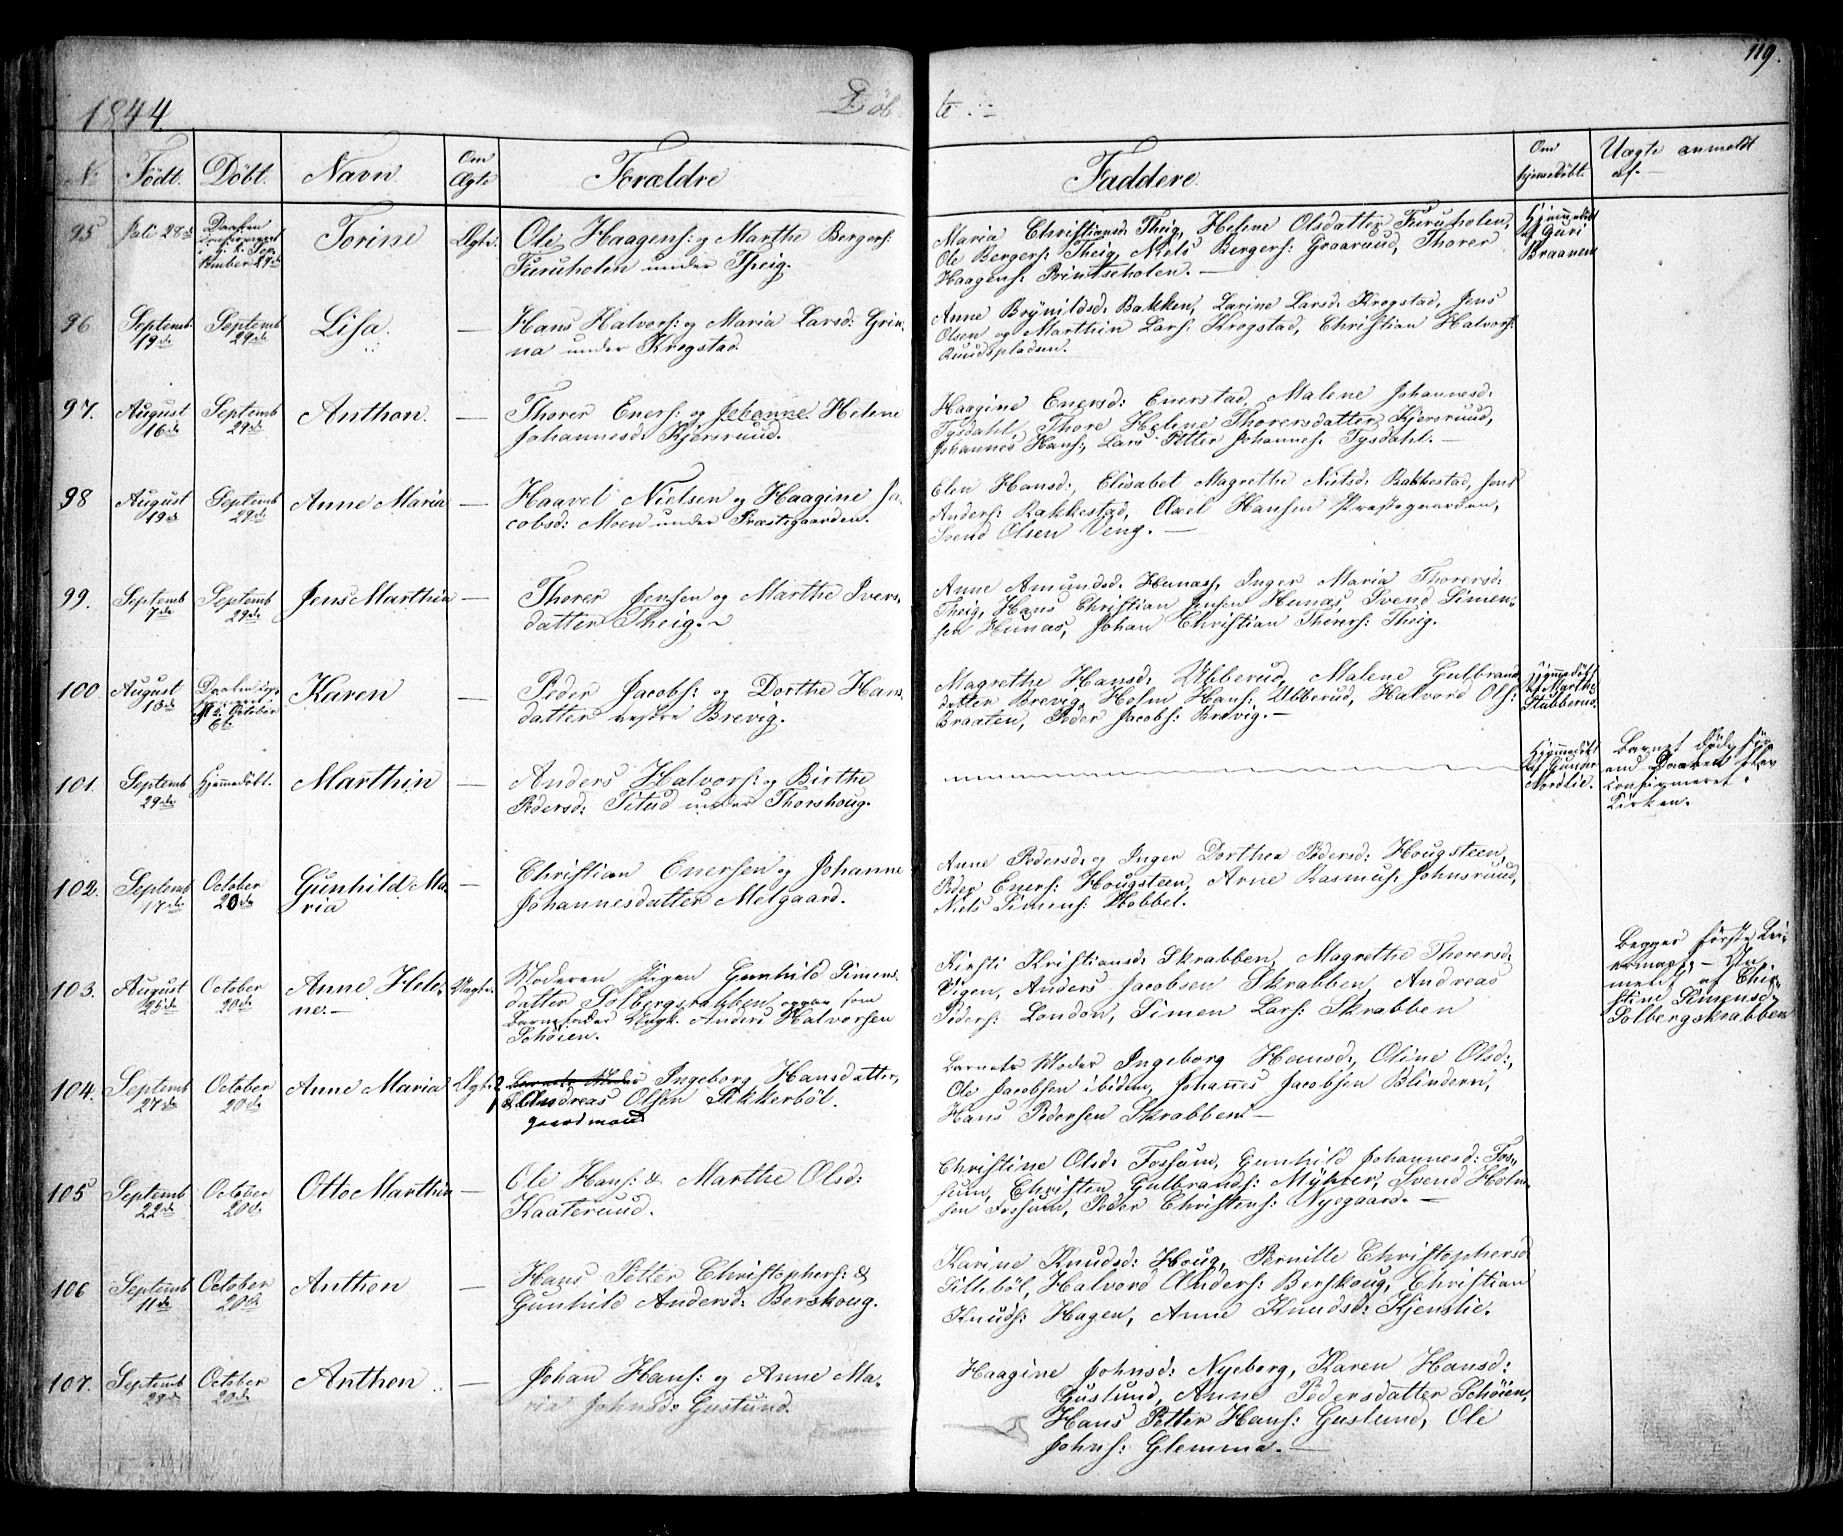 119.
1844.
Døbte
No Født. Døbt. Navn Om Ægte Forældre
Faddere. Om hjemmedøbt. Uægte anmeldt af
95 Juli 28de Daaben September 29de Torine Ægte. Ole Haagens: og Marthe Bergers:
Furuholen under Theig.
Maria Christiansd: Theig, Helene Olsdatter Furuholen,
Ole Bergers: Theig, Niels Bergers: Graarud, Thorer
Haagens: Printseholen.
Hjemmedøbt af Guri Braanem
96 Septemb 19de Septemb 29de Lisa. — Hans Halvors: og Maria Larsd: Grin-
na under Krogstad.
Anne Brynildsd: Bakken, Larine Larsd: Krogstad, Jens
Olsen og Marthin Lars: Krogstad, Christian Halvors:
Ruudspladsen.
97. August 16de Septemb 29de Anthon. — Thorer Eners: og Johanne Helene
Johannesd: Kjersruud.
Haagine Enersd: Enerstad, Malene Johannesd:
Tysdahl, Thore Helene Thorersdatter Kjersruud,
Johannes Hans:, Lars Petter Johannes: Tysdahl.
98 August 19de Septemb 29de Anne Maria — Haavel Nielsen og Haagine Ja-
cobsd: Moen under Præstegaarden.
Elen Hansd:, Elisabet Magrethe Nielsd: Rakkestad, Jens
Anders: Rakkestad, Axel Hansen Præstegaarden,
Svend Olsen Veng.
99. Septemb 7de Septemb 29de Jens Marthin — Thorer Jensen og Marthe Ivers-
datter Theig.
Anne Amundsd: Hunaas, Inger Maria Thorersd:
Theig, Hans Christian Jensen Hunas, Svend Simen-
sen Hunas, Johan Christian Thorers: Theig.
100. August 18de October 6te Karen — Peder Jacobs: og Dorthe Hans-
datter vestre Brevig.
Magrethe Hansd: Ubberud, Malene Gulbrands-
datter Brevig, Holm Hans: Ubberud, Halvord Ols:
Braaten, Peder Jacobs: Brevig.
Hjemmedøbt af Marthe Stubberud.
101. Septemb 29de Hjemmedøbt. Marthin — Anders Halvors: og Birthe
Pedersd: Titud under Thorshoug.
Hjemmedøbt af Gunder Nordlie.
Barnet døde før-
end Daaben blev
confirmeret i
Kirken.
102. Septemb 17de October 20de Gunhild Ma- — Christian Enersen og Johanne
ria Johannesdatter Melgaard.
Anne Pedersd: og Inger Dorthea Pedersd: Hougsteen,
Peder Eners: Hougsteen, Arne Rasmus: Johnsruud,
Niels Simens: Hobbel.
103. August 25de October 20de Anne Hele- Uægte. Moderen Pigen Gunhild Simens-
ne. datter Solbergskrabben, opgav som
Barnefader Ungk. Anders Halvorsen
Schøien.
Kirsti Kristiansd: Skrabben, Magrethe Thorersd:
Vigen, Anders Jacobsen Skrabben, Andreas
Peders: London, Simen Lars: Skrabben
Begges første Lei-
ermaal. — An-
meldt af Chri-
stine Simensd:
Solbergskrabben
104. Septemb 27de October 20de Anne Maria Ægte. 2 Barnets Moder Ingeborg Hansdatter,
1 Andreas Olsen Sikkerbøl.
gaardmand
Barnets Moder Ingeborg Hansd:, Oline Olsd:,
Ole Jacobsen ibidem, Johannes Jacobsen Blindern,
Hans Pedersen Skrabben.
105 Septemb 22de October 20de Otto Marthin — Ole Hans: & Marthe Olsd:
Kaaterud.
Christine Olsd: Fossum, Gunhild Johannesd: Fos-
sum, Christen Gulbrands: Mÿhrer, Svend Holm-
sen Fossum, Peder Christens: Nyegaard.
106 Septemb 11de October 20de Anthon — Hans Petter Christophers: &
Gunhild Andersd: Berskoug.
Karine Knudsd: Houg, Pernille Christophersd
Sillebøl, Halvord Anders: Berskoug, Christian
Knuds: Hagen, Anne Knudsd: Kjenslie.
107. Septemb 29de October 20de Anthon. — Johan Hans: og Anne Ma-
ria Johnsd: Guslund.
Haagine Johnsd: Nyeborg, Karen Hansd:
Guslund, Anne Pedersdatter Schøien,
Hans Petter Hans: Guslund, Ole
Johns: Glemma.